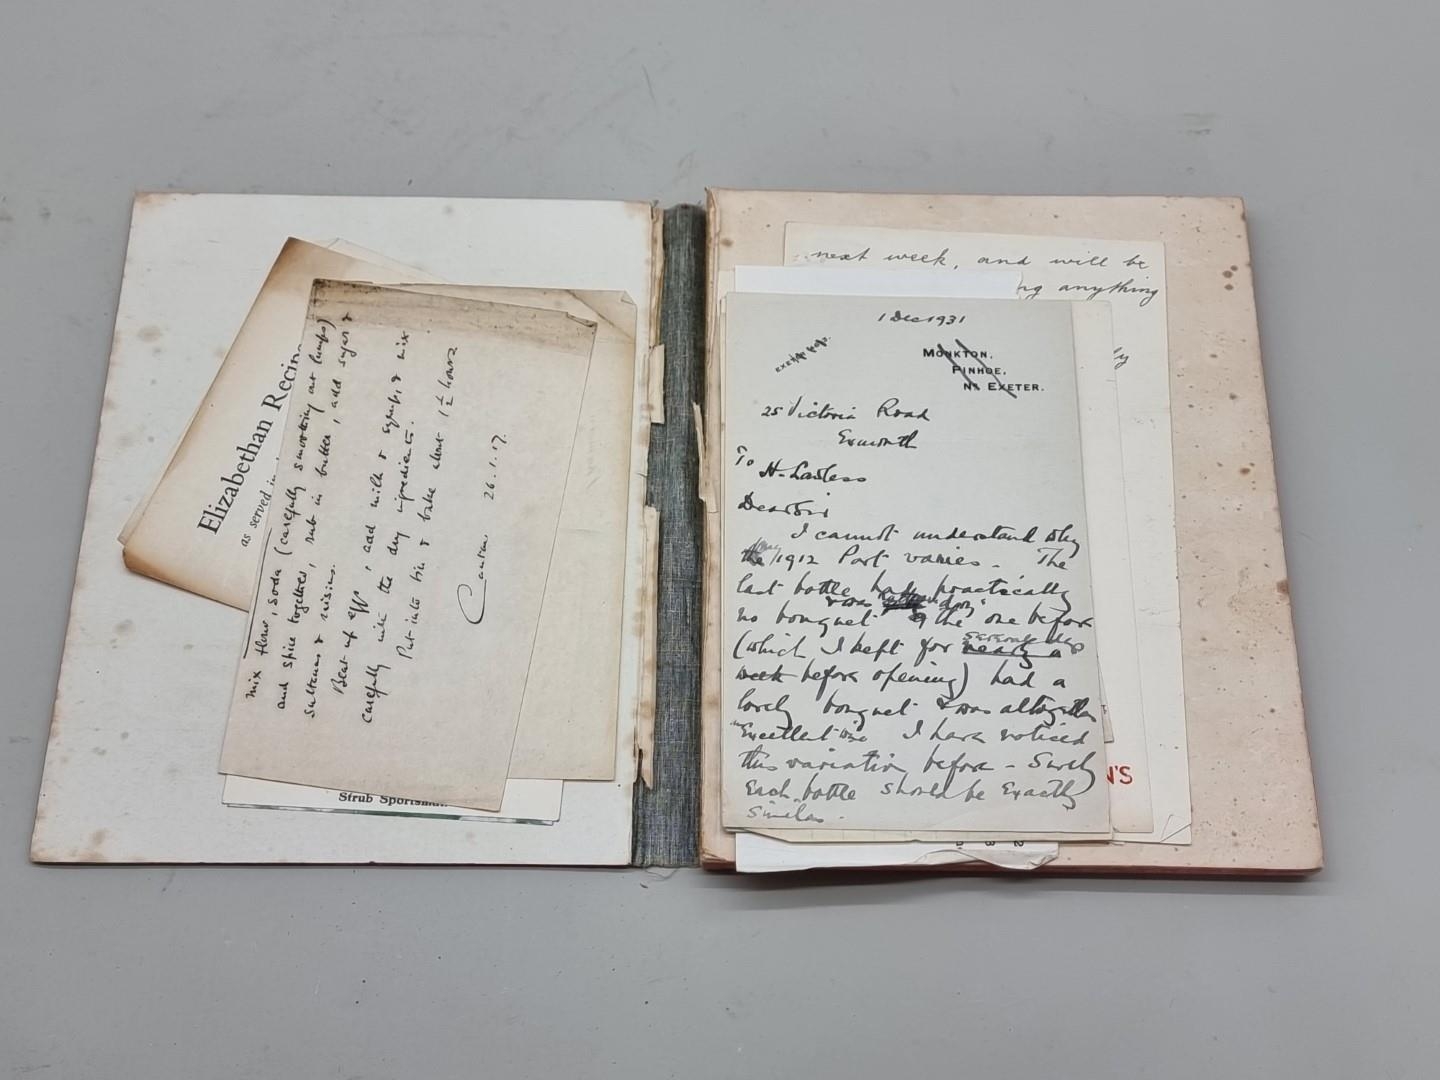 Elizabethan Recip
as served in
mix flour, soda (carefully smoothing out lumps)
and spice together, rub in butter, add sugar &
sultanas & raisins.
Beat up egg, add milk & syrup, & mix
carefully with the dry ingredients.
Put into tin & bake about 1½ hours
26.1.17.
Strub Sportsman
next week, and will be
ng anything
1 Dec 1931
MONKTON,
PINHOE,
Nr EXETER.
25 Victoria Road
Exmouth
To
H. Lawless
Dear Sir
I cannot understand why
the 1912 Port varies - The
last bottle had practically
no bouquet & was rather "dry" the one before
(which I kept for nearly a several days
week before opening) had a
lovely bouquet & was altogether
"Excellentissimo" I have noticed
this variation before - Surely
Each bottle should be Exactly
similar.
N'S
2
3